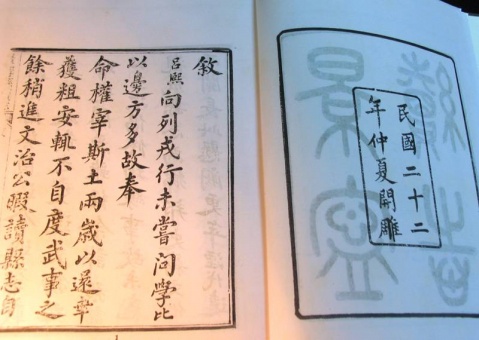 民國二十二
年仲夏開雕
敘
呂熙向列戎行未嘗問學比
以邊方多故奉
命權宰斯土兩歲以還幸
獲粗安輒不自度武事之
餘稍進文治公暇讀縣志